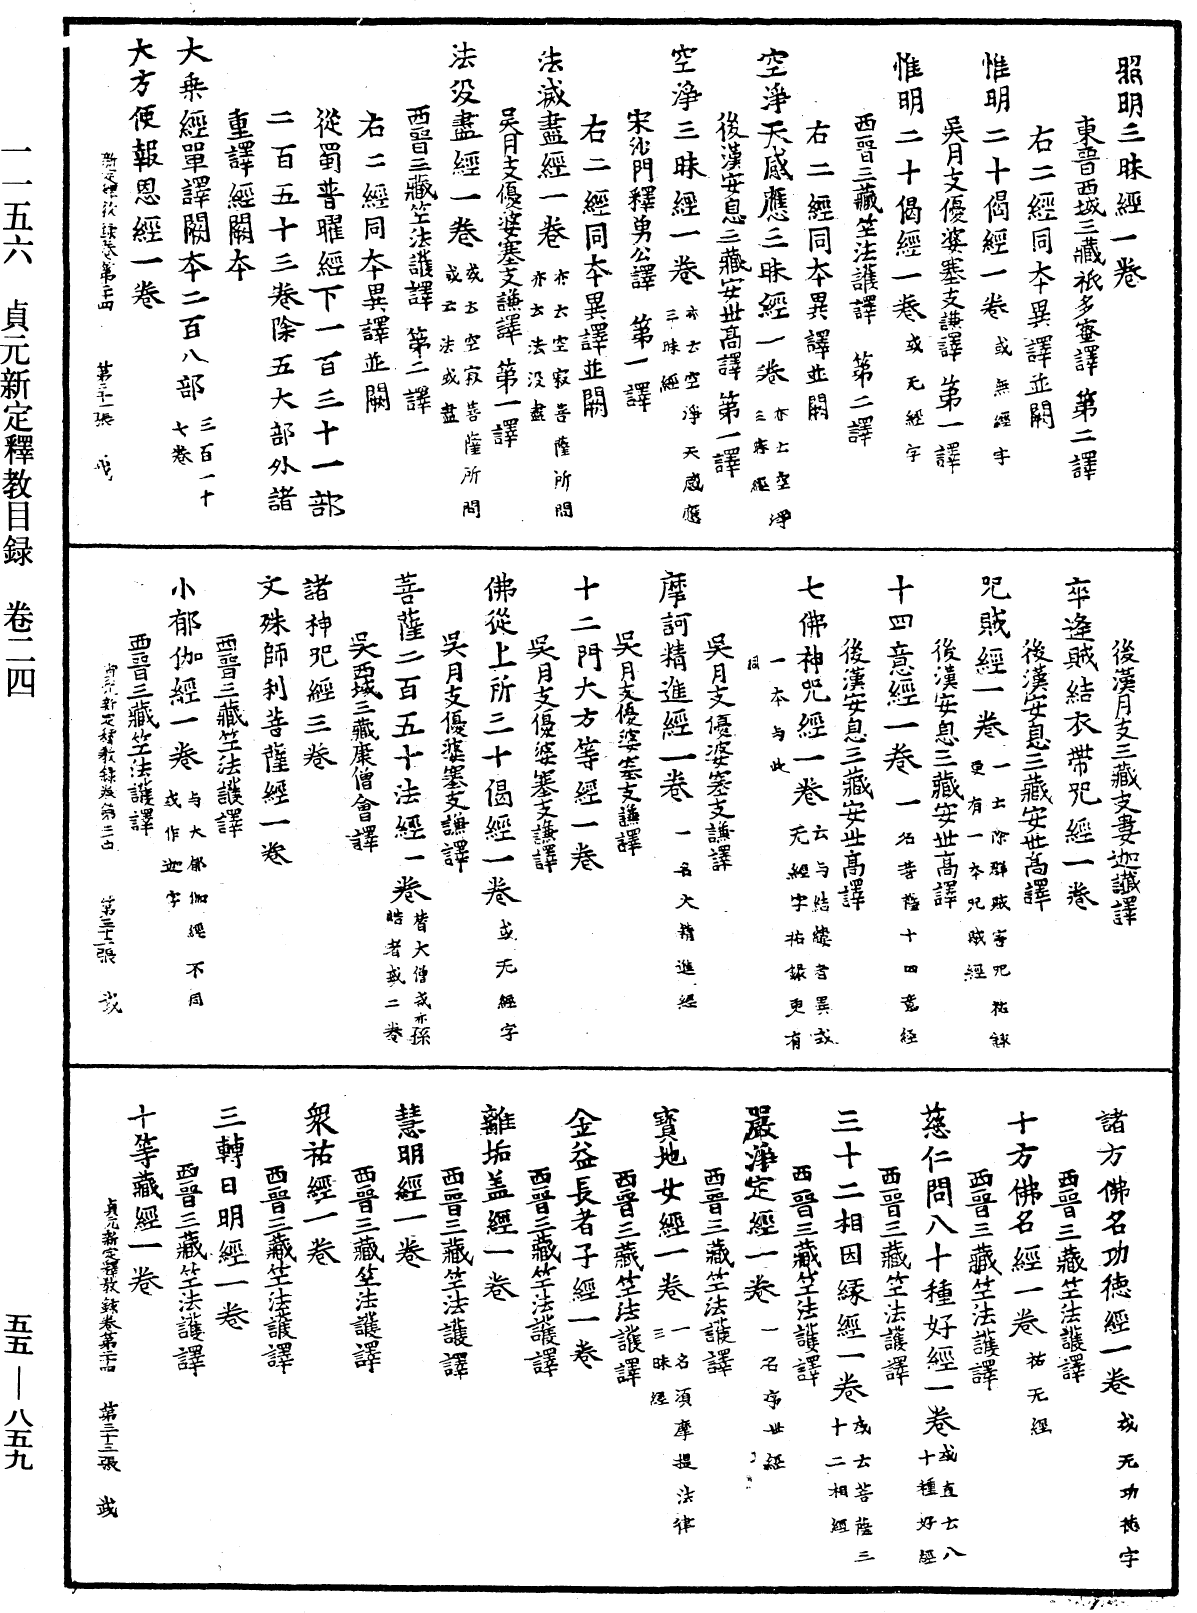 照明三昧經一卷
東晉西域三藏祇多蜜譯 第二譯
右二經同本異譯並闕
惟明二十偈經一卷 或無經字
吳月支優婆塞支謙譯 第一譯
惟明二十偈經一卷 或无經字
西晉三藏竺法護譯 第二譯
右二經同本異譯並闕
空淨天感應三昧經一卷 亦云空淨三昧經
後漢安息三藏安世高譯 第一譯
空淨三昧經一卷 亦云空淨天感應三昧經
宋沙門釋勇公譯 第一譯
右二經同本異譯並闕
法滅盡經一卷 亦云空寂菩薩所問亦云法没盡
吳月支優婆塞支謙譯 第一譯
法没盡經一卷 或云空寂菩薩所問或云法或盡
西晉三藏竺法護譯 第二譯
右二經同本異譯並闕
從蜀普曜經下一百三十一部
二百五十三卷除五大部外諸
重譯經闕本
大乘經單譯闕本二百八部 三百一十七卷
大方便報恩經一卷
第三十一張
後漢月支三藏支婁迦讖譯
卒逢賊結衣帶咒經一卷
後漢安息三藏安世高譯
咒賊經一卷 一云除辟賊害咒祐錄更有一本咒賊經
後漢安息三藏安世高譯
十四意經一卷 一名菩薩十四意經
後漢安息三藏安世高譯
七佛神咒經一卷 云与結縷者異或无經字祐錄更有一本与此同
吳月支優婆塞支謙譯
摩訶精進經一卷 一名大精進經
吳月支優婆塞支謙譯
十二門大方等經一卷
吳月支優婆塞支謙譯
佛從上所三十偈經一卷 或无經字
吳月支優婆塞支謙譯
菩薩二百五十法經一卷 替大僧戒示孫皓者或二卷
吳西域三藏康僧會譯
諸神咒經三卷
文殊師利菩薩經一卷
西晉三藏竺法護譯
小郁伽經一卷 与大郁伽經不同或作迦字
西晉三藏竺法護譯
諸方佛名功徳經一卷 或无功徳字
西晉三藏竺法護譯
十方佛名經一卷 祐无經
西晉三藏竺法護譯
慈仁問八十種好經一卷 或直云八十種好經
西晉三藏竺法護譯
三十二相因縁經一卷 或云菩薩三十二相經
西晉三藏竺法護譯
嚴淨定經一卷 一名序世經
西晉三藏竺法護譯
寶地女經一卷 一名須摩提法律三昧經
西晉三藏竺法護譯
金益長者子經一卷
西晉三藏竺法護譯
離垢盖經一卷
西晉三藏竺法護譯
慧明經一卷
西晉三藏竺法護譯
衆祐經一卷
西晉三藏竺法護譯
三轉日明經一卷
西晉三藏竺法護譯
十等藏經一卷
貞元新定釋教録卷第二十四 第三十三張
一一五六 貞元新定釋教目録 卷二四
五五—八五九